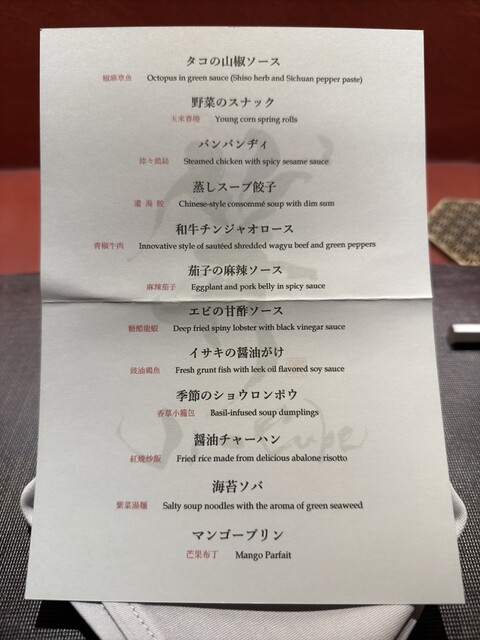 タコの山椒ソース
椒麻章魚 Octopus in green sauce (Shiso herb and Sichuan pepper paste)
野菜のスナック
玉米春捲 Young corn spring rolls
バンバンヂィ
棒々鶏絲 Steamed chicken with spicy sesame sauce
蒸しスープ餃子
灌湯餃 Chinese-style consommé soup with dim sum
和牛チンジャオロース
青椒牛肉 Innovative style of sautéed shredded wagyu beef and green peppers
茄子の麻辣ソース
麻辣茄子 Eggplant and pork belly in spicy sauce
エビの甘酢ソース
糖醋龍蝦 Deep fried spiny lobster with black vinegar sauce
イサキの醤油がけ
豉油鶏魚 Fresh grunt fish with leek oil flavored soy sauce
季節のショウロンポウ
香草小籠包 Basil-infused soup dumplings
醤油チャーハン
紅燒炒飯 Fried rice made from delicious abalone risotto
海苔ソバ
紫菜湯麺 Salty soup noodles with the aroma of green seaweed
マンゴープリン
芒果布丁 Mango Parfait